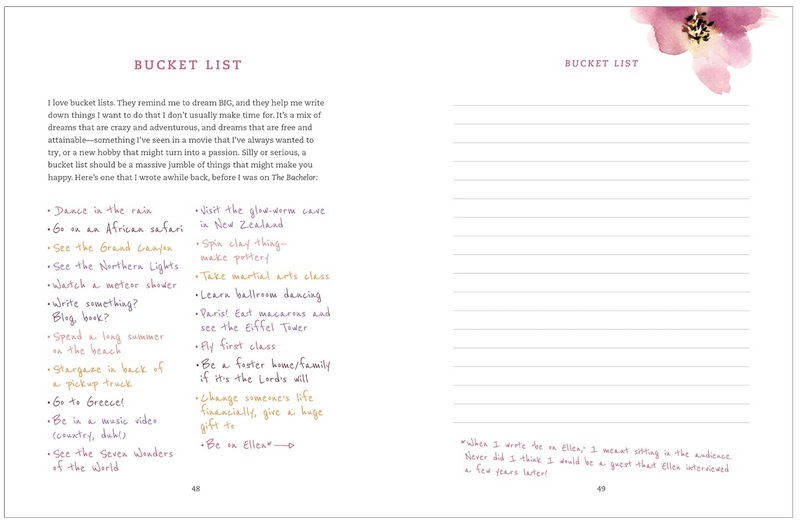 BUCKET LIST
I love bucket lists. They remind me to dream BIG, and they help me write
down things I want to do that I don't usually make time for. It's a mix of
dreams that are crazy and adventurous, and dreams that are free and
attainable—something I've seen in a movie that I've always wanted to
try, or a new hobby that might turn into a passion. Silly or serious, a
bucket list should be a massive jumble of things that might make you
happy. Here's one that I wrote awhile back, before I was on The Bachelor:
• Dance in the rain
• Go on an African safari
• See the Grand Canyon
• See the Northern Lights
• Watch a meteor shower
• Write something?
Blog, book?
• Spend a long summer
on the beach
• Stargaze in back of
a pickup truck
• Go to Greece!
• Be in a music video
(country, duh!)
• See the Seven Wonders
of the World
• Visit the glow-worm cave
in New Zealand
• Spin clay thing—
make pottery
• Take martial arts class
• Learn ballroom dancing
• Paris! Eat macarons and
see the Eiffel Tower
• Fly first class
• Be a foster home/family
if it's the Lord's will
• Change someone's life
financially, give a huge
gift to
• Be on Ellen* →
48
BUCKET LIST
*When I wrote "be on Ellen," I meant sitting in the audience.
Never did I think I would be a guest that Ellen interviewed
a few years later!
49